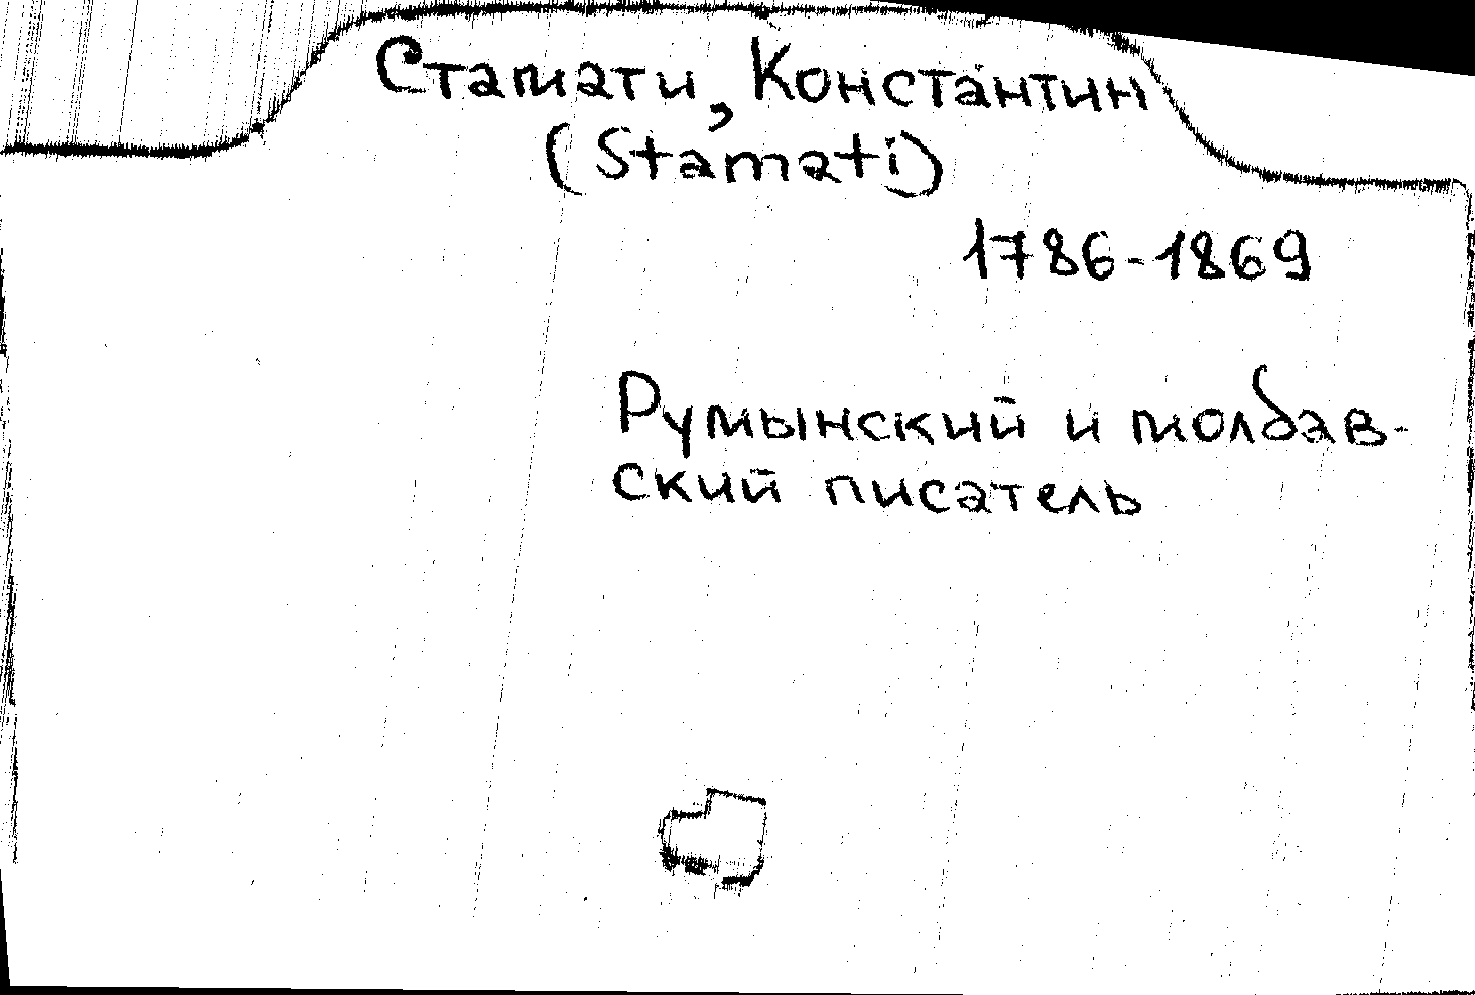 Стамати, Константин
(Stamati)
1786-1869
Румынский и молдав-
ский писатель